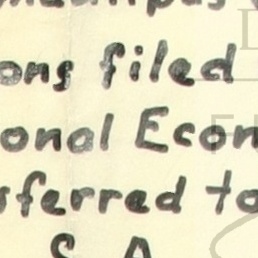 ons filed
onal Econ
ferred to
S A